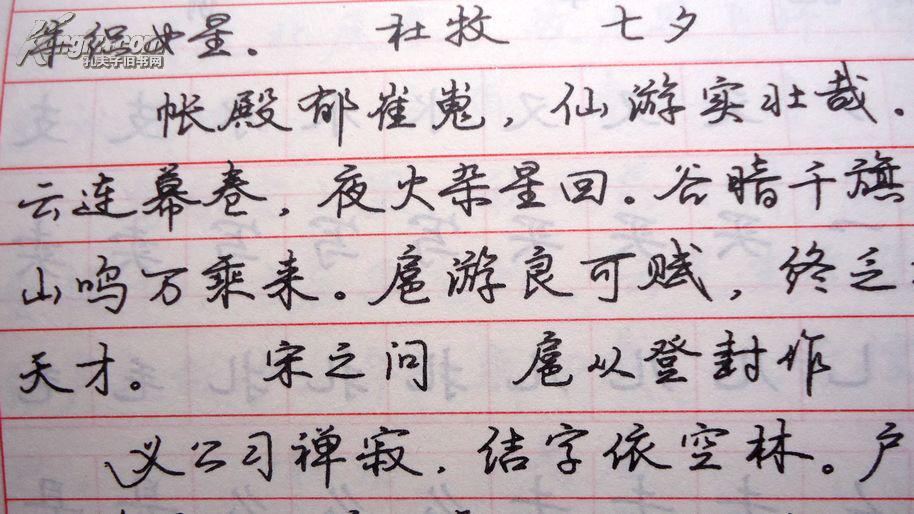 星. 杜牧 七夕
孔夫子旧书网
帐殿郁崔嵬,仙游实壮哉.
云连幕卷,夜火杂星回。谷暗千旗
山鸣万乘来。扈游良可赋,终乏
天才。 宋之问 扈以登封作
义公习禅寂.结字依空林。户